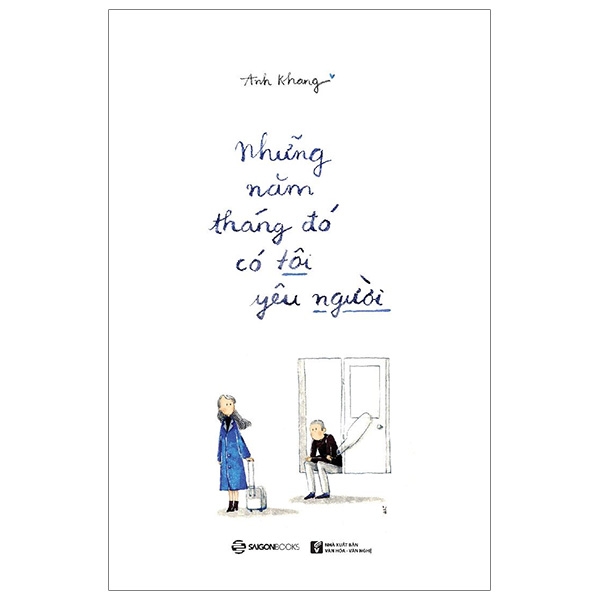 Anh Khang
Những
năm
tháng đó
có tôi
yêu người
SAIGONBOOKS
NHÀ XUẤT BẢN
VĂN HÓA - VĂN NGHỆ